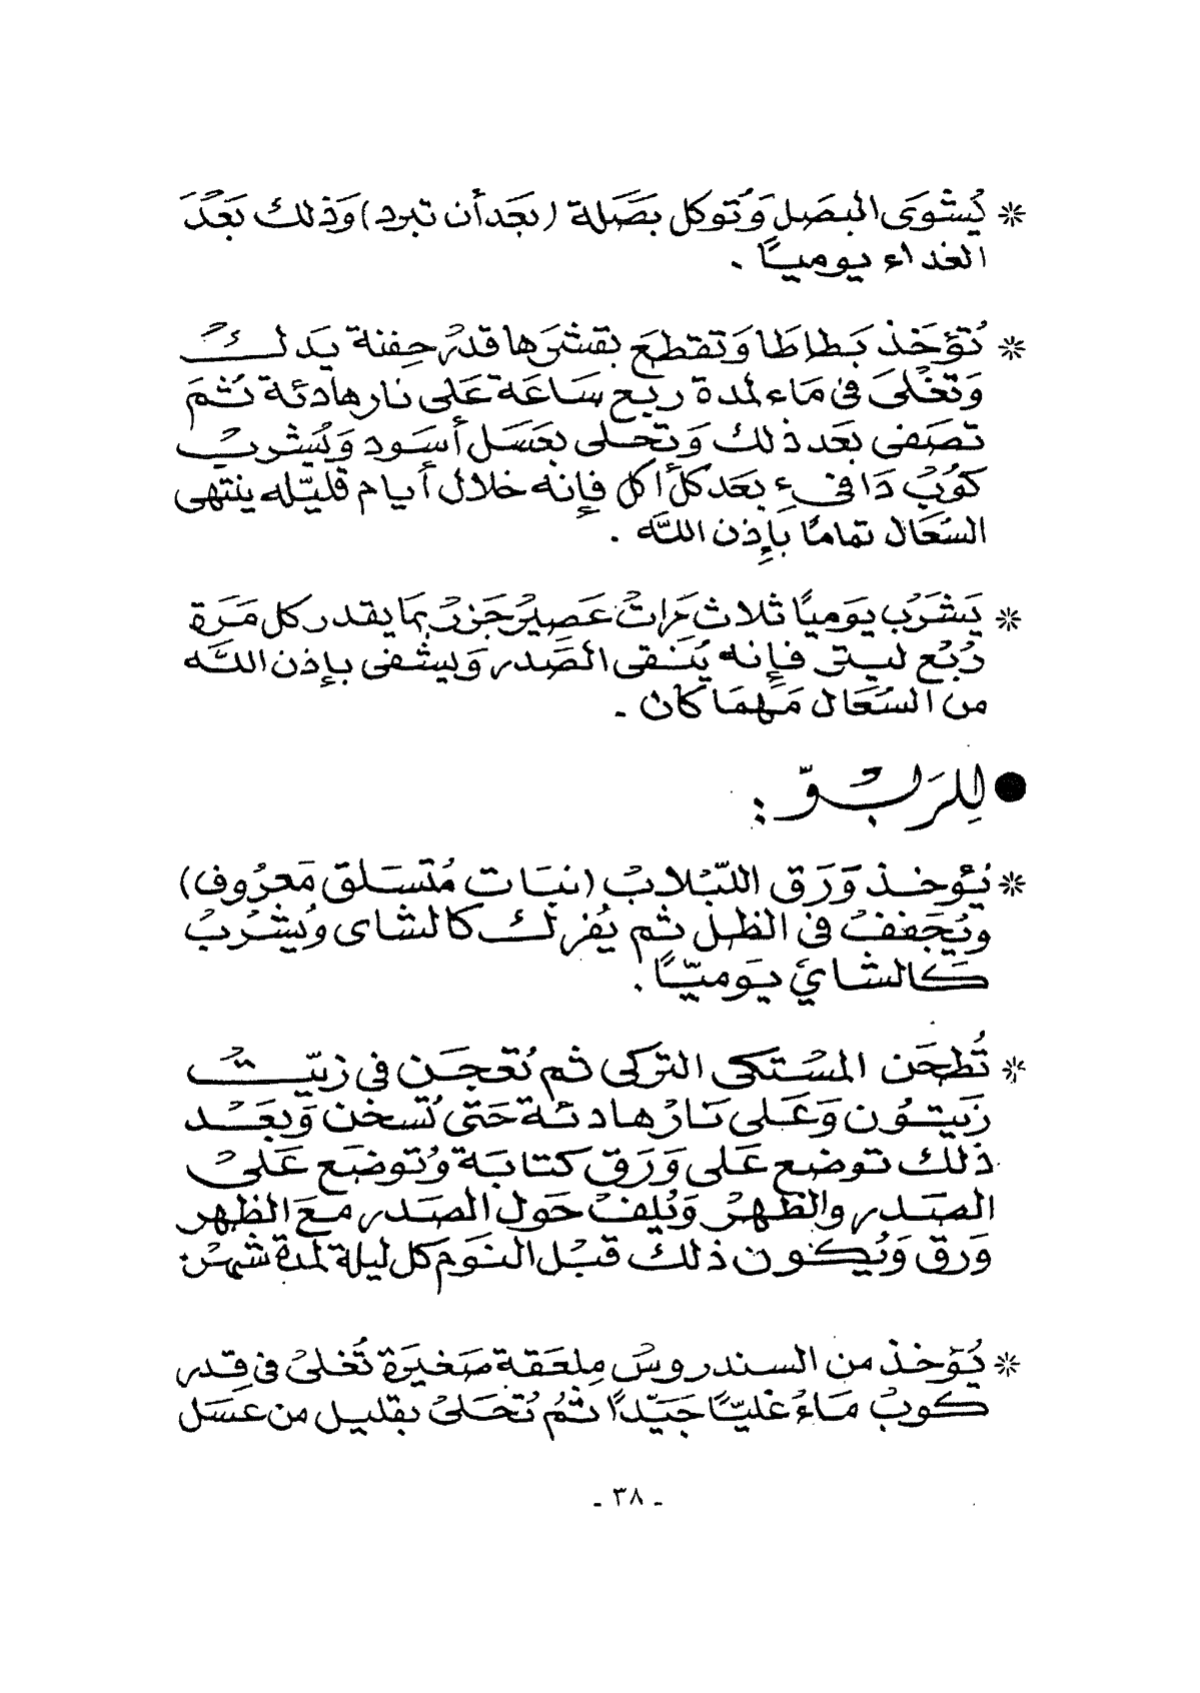 * يُشْوَى البصَل وَتُوكل بصَلة (بعَد أن تبرد) وَذلك بَعْدَ
الغداء يوميًّا .
* تُؤخَذ بَطاطَا وَتقطعَ بقشرَها قدرُ حِفنة يَدلكُ
وَتغْلىَ فى مَاء لمدة ربع سَاعَة عَلى نار هادئة ثُمَ
تصَفى بعَد ذلك وَتحلى بعَسَل أسوَد وَيُشربُ
كوُبُ دَافىءِ بعَد كلّ أكل فإِنه خلال أيام قليّله ينتهى
السُعَال تمامًا بإِذن اللَّه .
* يَشرَبُ يوَميًا ثلاث مَراتْ عَصِيرُ جَزرُ بمَا يقدر كل مَرَة
رُبْع ليتر فإِنه يُنَقى الصَدر وَيشفى بإِذن اللَّه
من السُعَال مَهمَا كان .
● لِلرَبْوّ :
* يُؤخذ وَرَق اللّبْلابُ (نبَات مُتسَلق مَعرُوف)
ويُجَففُ فى الظل ثم يُفرك كالشاى ويُشْرَبُ
كَالشايَ يوَميّـًا .
* تُطحَن المسْتكى التركى ثم تُعجَن فى زيّتُ
زَيتوُن وَعَلى نَارْ هادئة حَتى تُسخن وَبعَدْ
ذلك توضع عَلى وَرَق كتابَة وُتوضَع عَلىْ
الصَدر والظهرْ وَيُلفْ حَول الصَدر معَ الظهر
وَرق وَيُكون ذلك قبْل النوَم كل ليلة لمدة شهرْ
* يُؤخذ من السندروسُ مِلعَقة صَغيرَة تُغلىُ فى قِدر
كوبُ مَاءُ غليّـًا جَيّدًا ثمُ تُحَلىُ بقليل من عَسَل
- ٣٨ -